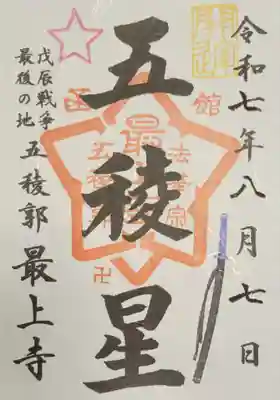 令和七年八月七日
五稜星
函館
最
法華宗
五稜郭
卍
戊辰戦争
最後の地
五稜郭 最上寺